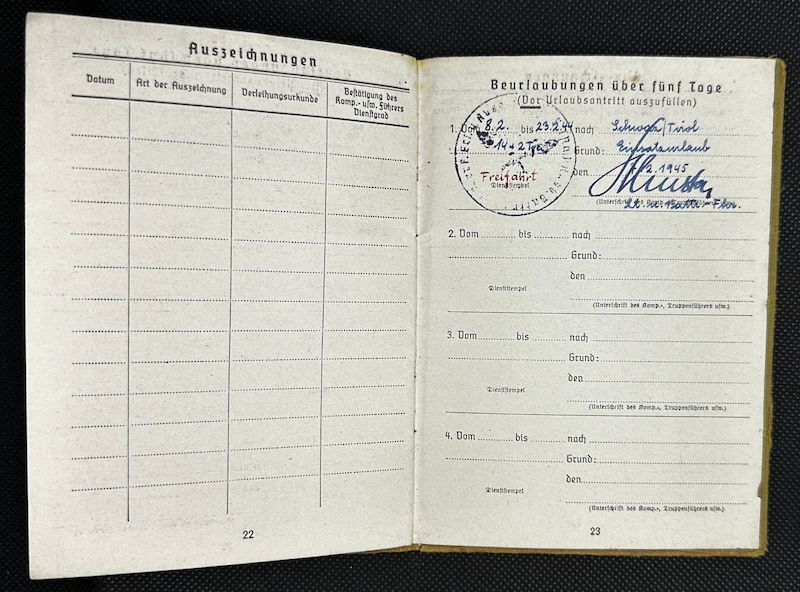 Auszeichnungen
Datum
Art der Auszeichnung
Verleihungsurkunde
Bestätigung des
Komp.- usw. Führers
Dienstgrad
22
Beurlaubungen über fünf Tage
(Vor Urlaubsantritt auszufüllen)
1. Vom 8.2. bis 23.2.44 nach Schwaz/Tirol
14+2 Grund: Einsatzurlaub
den 7.2.1945
Freifahrt
Dienststempel
(Unterschrift des
Lt. u. Battr.
2. Vom bis nach
Grund:
den
Dienststempel
(Unterschrift des Komp.-, Truppenführers usw.)
3. Vom bis nach
Grund:
den
Dienststempel
(Unterschrift des Komp.-, Truppenführers usw.)
4. Vom bis nach
Grund:
den
Dienststempel
(Unterschrift des Komp.-, Truppenführers usw.)
23